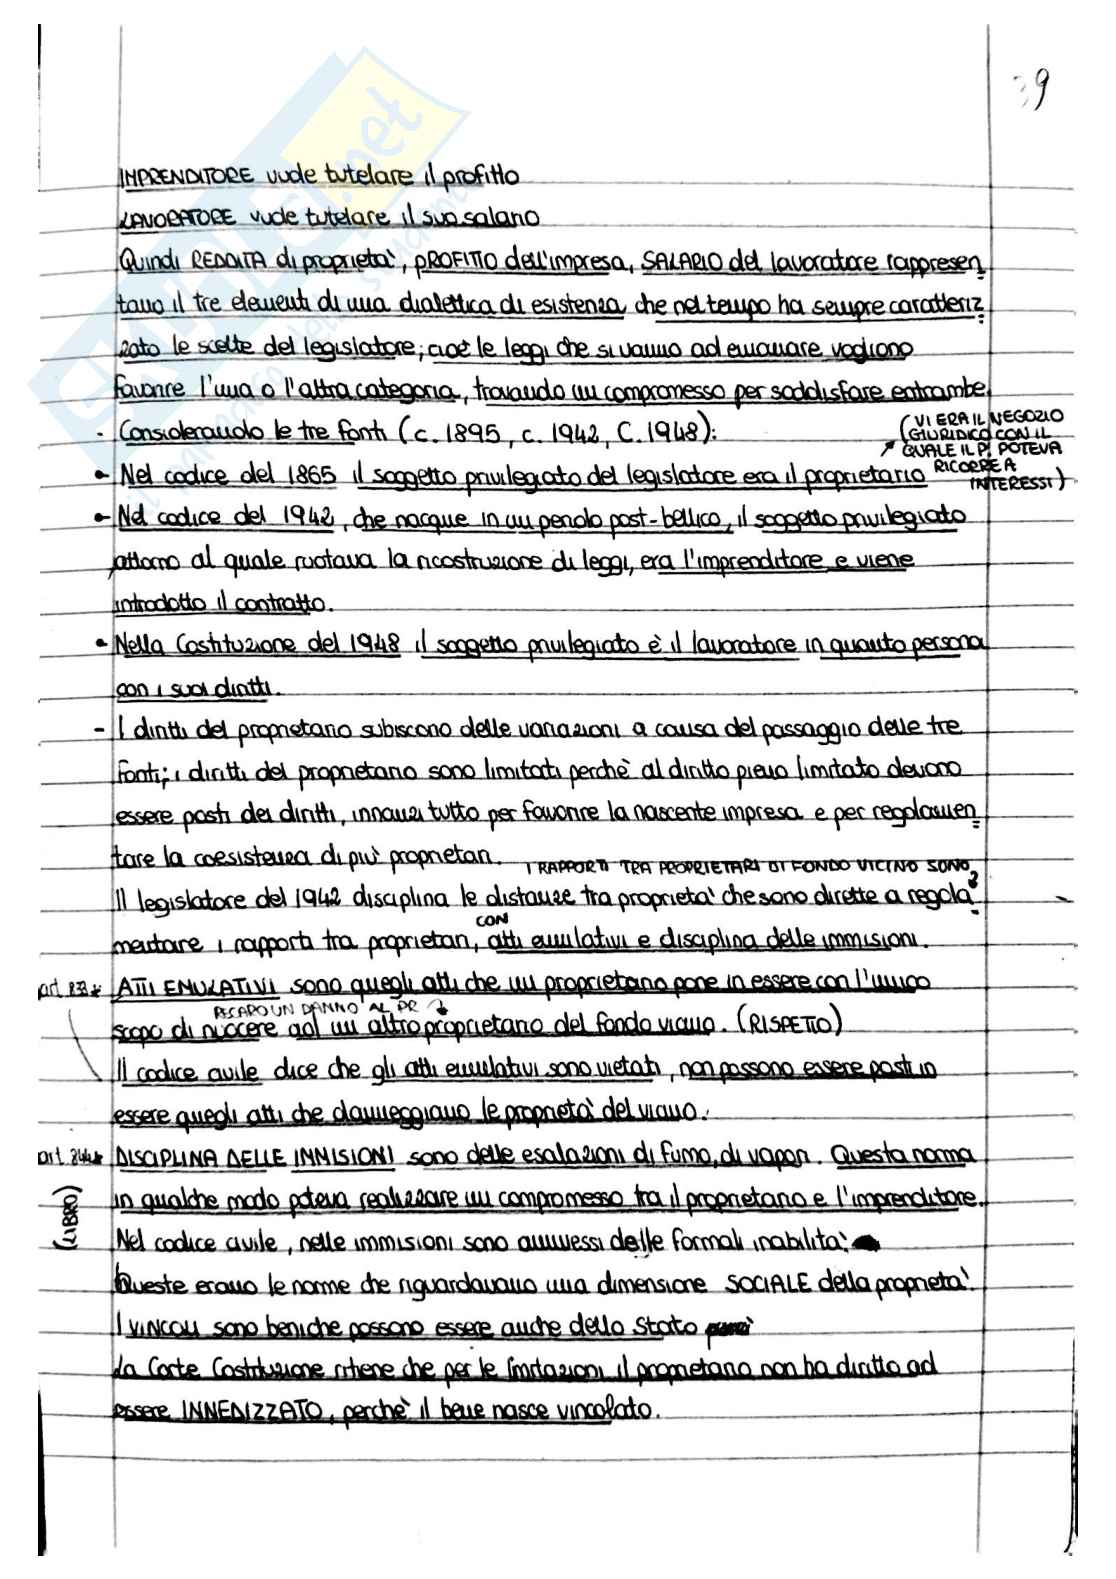 39
IMPRENDITORE vuole tutelare il profitto
LAVORATORE vuole tutelare il suo salario
Quindi RENDITA di proprietà, PROFITTO dell'impresa, SALARIO del lavoratore rappresen
tano il tre elementi di una dialettica di esistenza che nel tempo ha sempre caratteriz
zato le scelte del legislatore; cioè le leggi che si vanno ad emanare vogliono
favorire l'una o l'altra categoria, trovando un compromesso per soddisfare entrambe.
- Considerando le tre fonti (c. 1895, c. 1942, C. 1948):
(VI ERA IL NEGOZIO
GIURIDICO CON IL
QUALE IL P. POTEVA
RICORRE A
INTERESSI)
• Nel codice del 1865 il soggetto privilegiato del legislatore era il proprietario
• Nel codice del 1942, che nacque in un periodo post-bellico, il soggetto privilegiato
attorno al quale ruotava la ricostruzione di leggi, era l'imprenditore e viene
introdotto il contratto.
• Nella Costituzione del 1948 il soggetto privilegiato è il lavoratore in quanto persona
con i suoi diritti.
- I diritti del proprietario subiscono delle variazioni a causa del passaggio delle tre
fonti; i diritti del proprietario sono limitati perchè al diritto pieno limitato devono
essere posti dei diritti, innanzi tutto per favorire la nascente impresa e per regolamen
tare la coesistenza di più proprietari.
I RAPPORTI TRA PROPRIETARI DI FONDO VICINO SONO
Il legislatore del 1942 disciplina le distanze tra proprietà che sono dirette a regola
CON
mentare i rapporti tra proprietari, atti emulativi e disciplina delle immisioni.
art. 833* ATTI EMULATIVI sono quegli atti che un proprietario pone in essere con l'unico
RECARO UN DANNO AL PR
scopo di nuocere ad un altro proprietario del fondo vicino. (RISPETTO)
Il codice civile dice che gli atti emulativi sono vietati, non possono essere posti in
essere quegli atti che danneggiano le proprietà del vicino.
art. 844* DISCIPLINA DELLE IMMISIONI sono delle esalazioni di fumo, di vapori. Questa norma
(LIBRO)
in qualche modo poteva realizzare un compromesso tra il proprietario e l'imprenditore.
Nel codice civile, nelle immisioni sono ammessi delle formali inabilità.
Queste erano le norme che riguardavano una dimensione SOCIALE della proprietà.
I VINCOLI sono beni che possono essere anche dello Stato
La Corte Costituzione ritiene che per le limitazioni il proprietario non ha diritto ad
essere INNEDIZZATO, perchè il bene nasce vincolato.